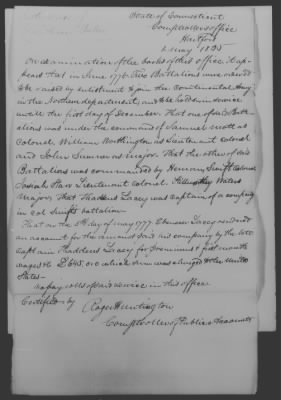 State of Connecticut
Comptrollers office
Hartford
2 May 1835
On examination of the books of this office it ap-
pears that in June 1776 Two Battalions were ordered
to be raised by enlistment to join the Continental Army
in the Northern department, and to be continued in service
untill the first day of December. That one of said Batt-
alions was under the command of Samuel Mott as
Colonel, William Worthington as Lieutenant Colonel
and John Simmons Major. That the other of said
Battalions was commanded by Heman Swift Colonel
Josiah Starr Lieutenant Colonel.
Major, that Thaddeus Lacey was Captain of a company
in Col Swifts battalion
That on the 5th day of May 1777 Ebenezer Lacey rendered
an account for the amount paid his company by the late
Captain Thaddeus Lacey for Premiums & first month
wages to £645. 0. 0 which sum was charged to the United
States—
No pay rolls of said service in this office
Certified by
Roger Huntington
Comptroller of Public Accounts